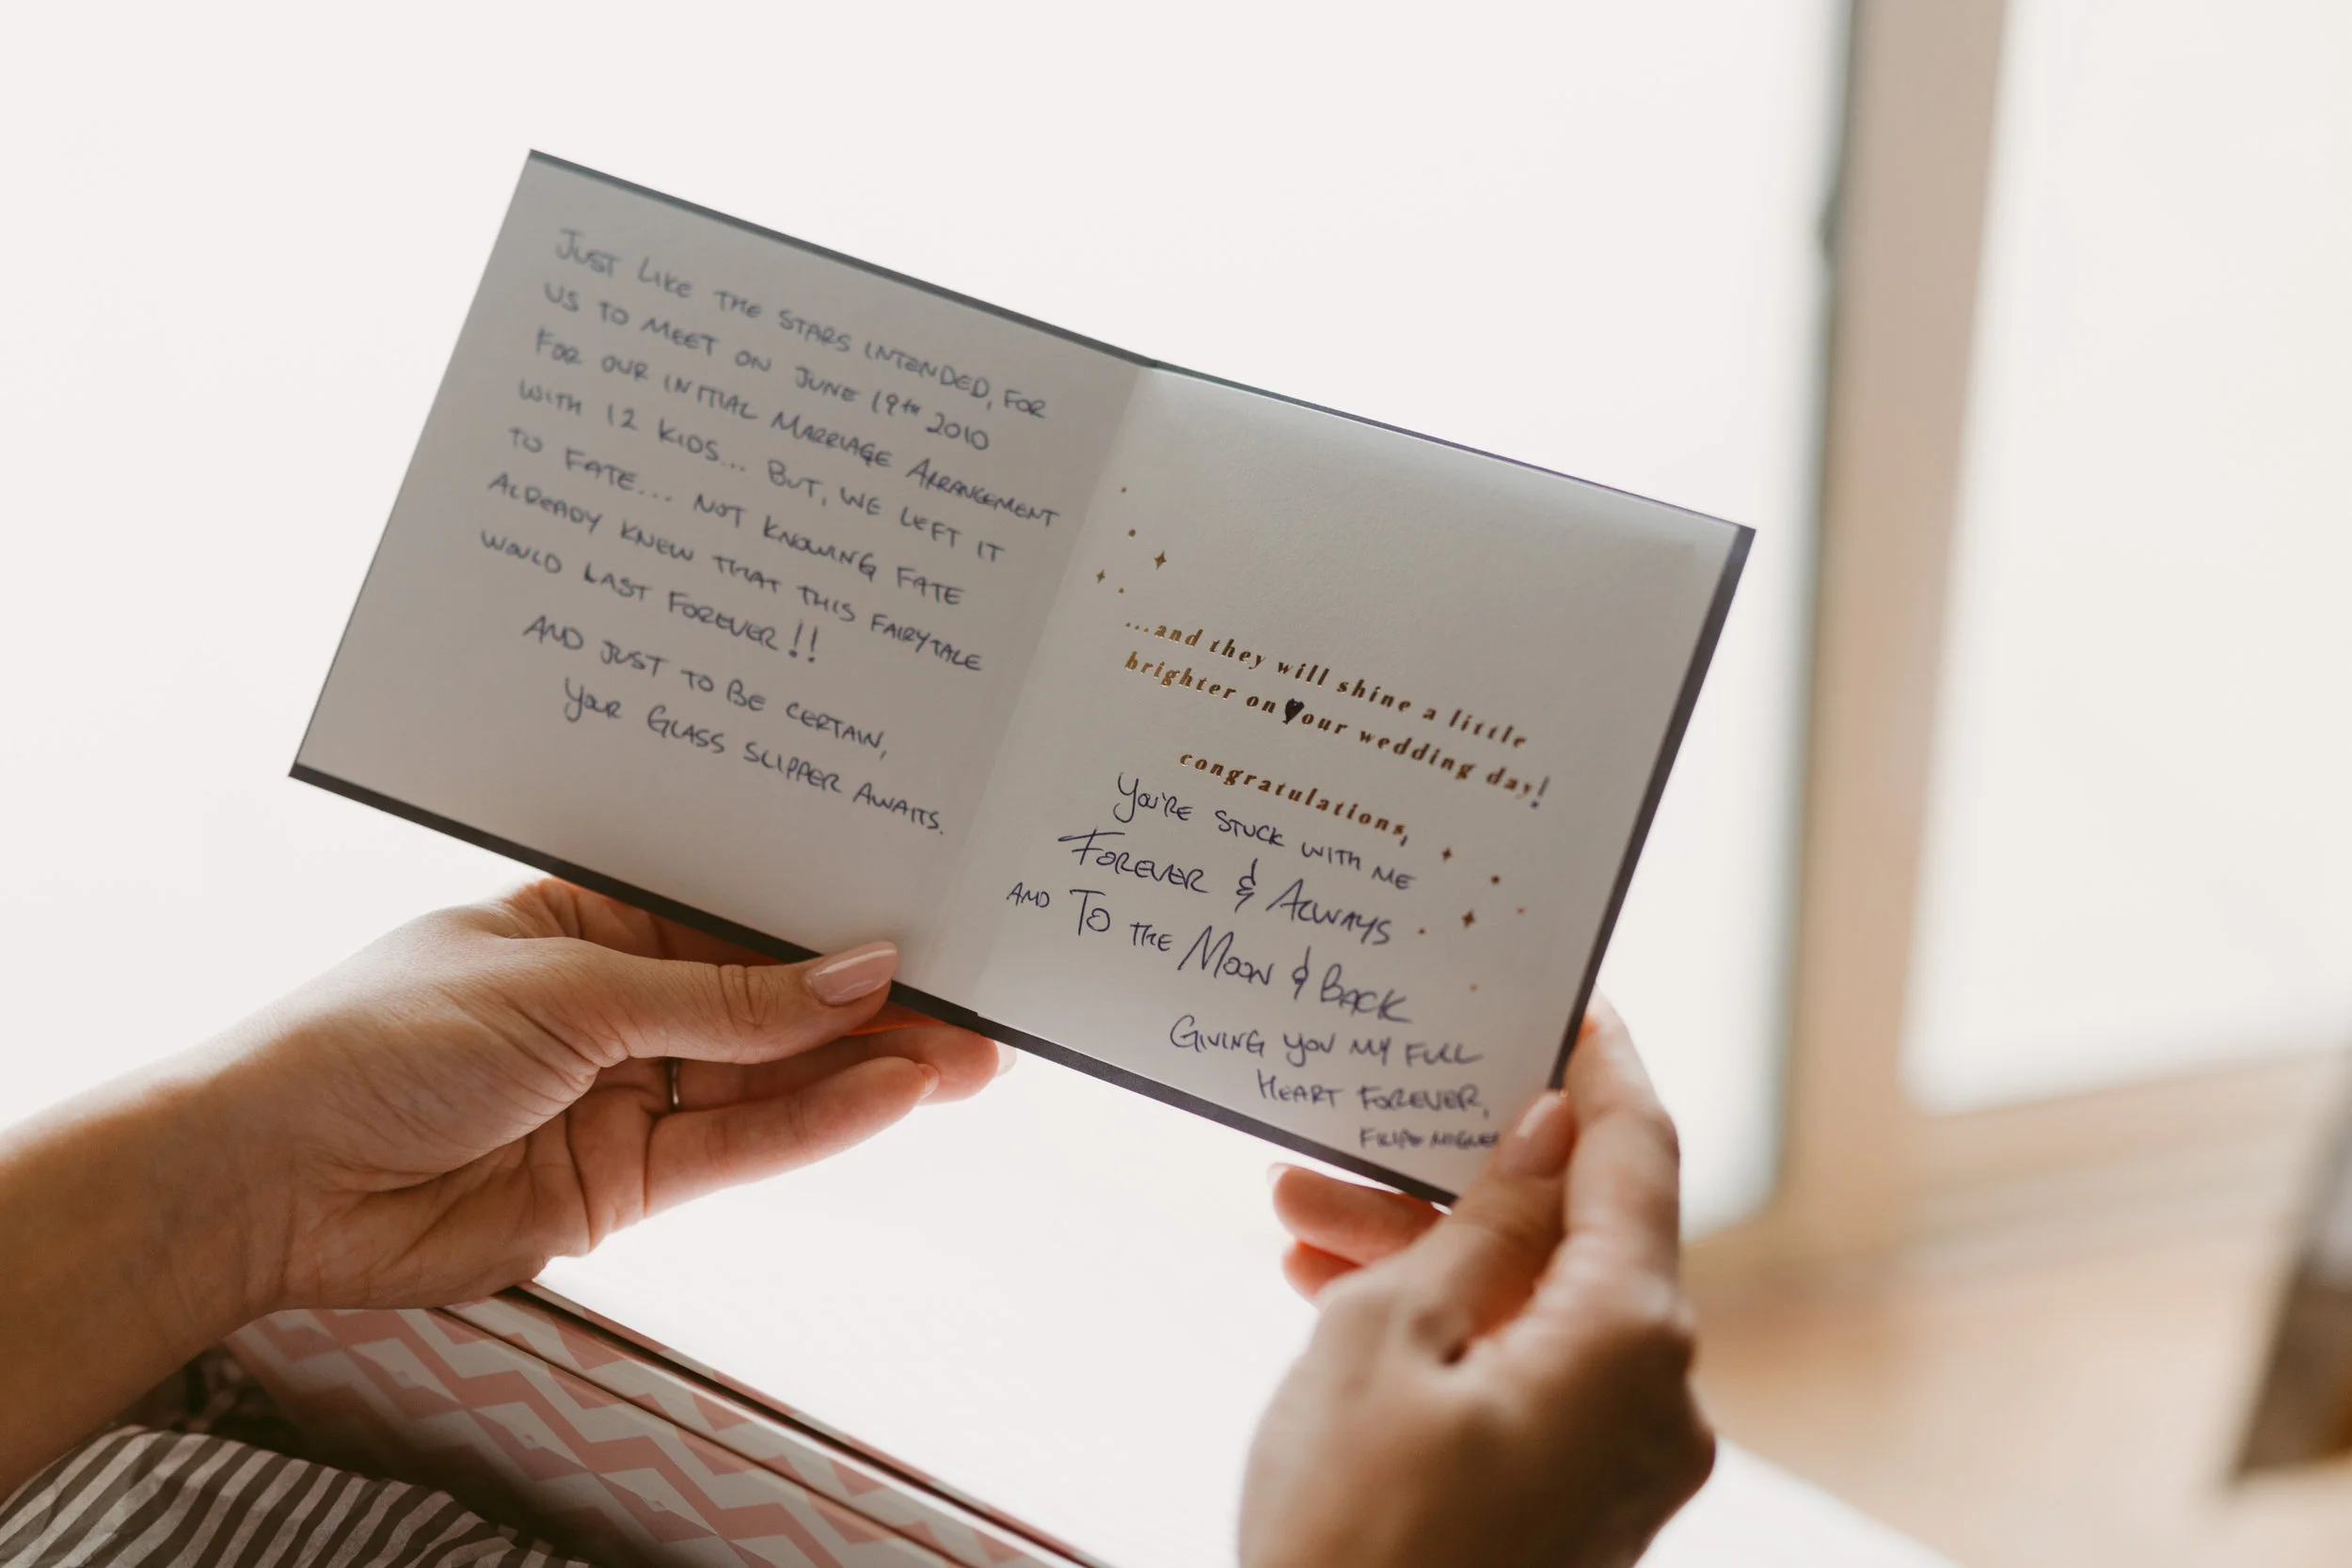 JUST LIKE THE STARS INTENDED, FOR
US TO MEET ON JUNE 19th 2010
FOR OUR INITIAL MARRIAGE ARRANGEMENT
WITH 12 KIDS... BUT, WE LEFT IT
TO FATE... NOT KNOWING FATE
ALREADY KNEW THAT THIS FAIRYTALE
WOULD LAST FOREVER!!
AND JUST TO BE CERTAIN,
YOUR GLASS SLIPPER AWAITS.
...and they will shine a little
brighter on ♥our wedding day!
congratulations,
YOU'RE STUCK WITH ME
FOREVER & ALWAYS
AND TO THE MOON & BACK
GIVING YOU MY FULL
HEART FOREVER,